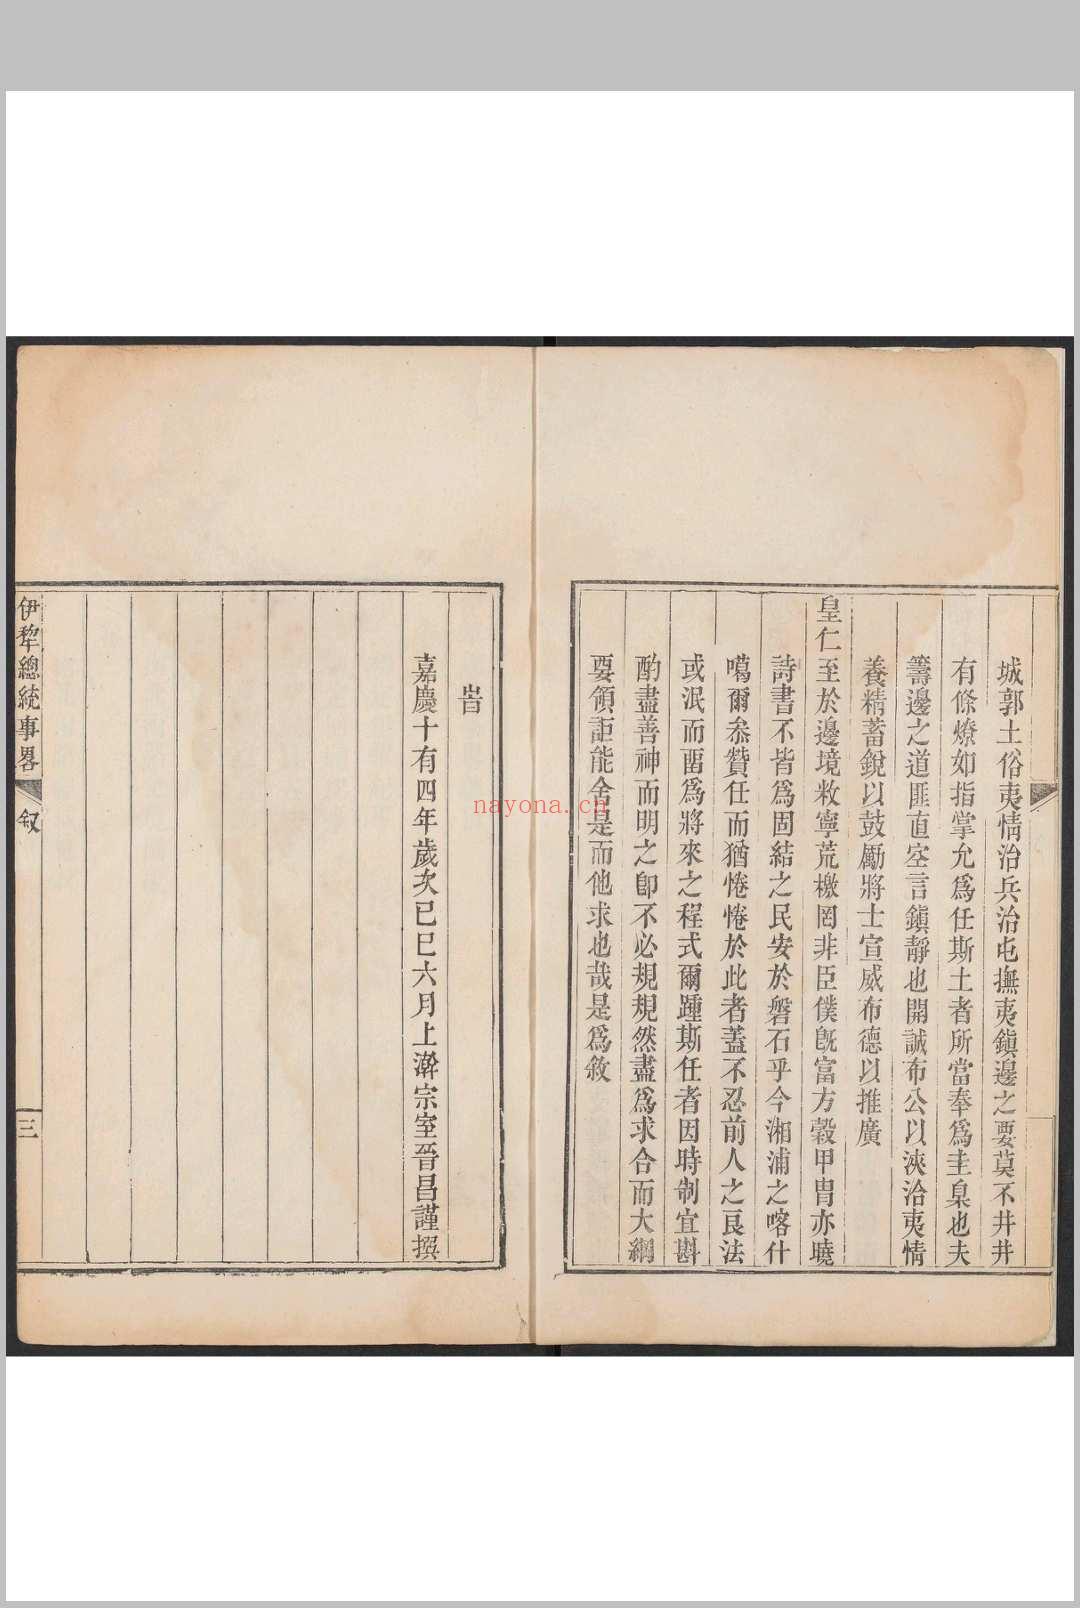 城郭土俗夷情治兵治屯撫夷鎮邊之要莫不井井
有條燎如指掌允爲任斯土者所當奉爲圭臬也夫
籌邊之道匪直空言鎮靜也開誠布公以浹洽夷情
養精蓄銳以鼓勵將士宣威布德以推廣
皇仁至於邊境敉寧荒檄罔非臣僕旣富方穀甲冑亦嬈
詩書不皆爲固結之民安於磐石乎今湘浦之喀什
噶爾叅贊任而猶惓惓於此者蓋不忍前人之良法
或泯而畱爲將來之程式爾踵斯任者因時制宜斟
酌盡善神而明之卽不必規規然盡爲求合而大綱
要領詎能舍是而他求也哉是爲敘
旹
嘉慶十有四年歲次己巳六月上澣宗室晉昌謹撰
伊犂總統事畧
叙
三
nayona.cn